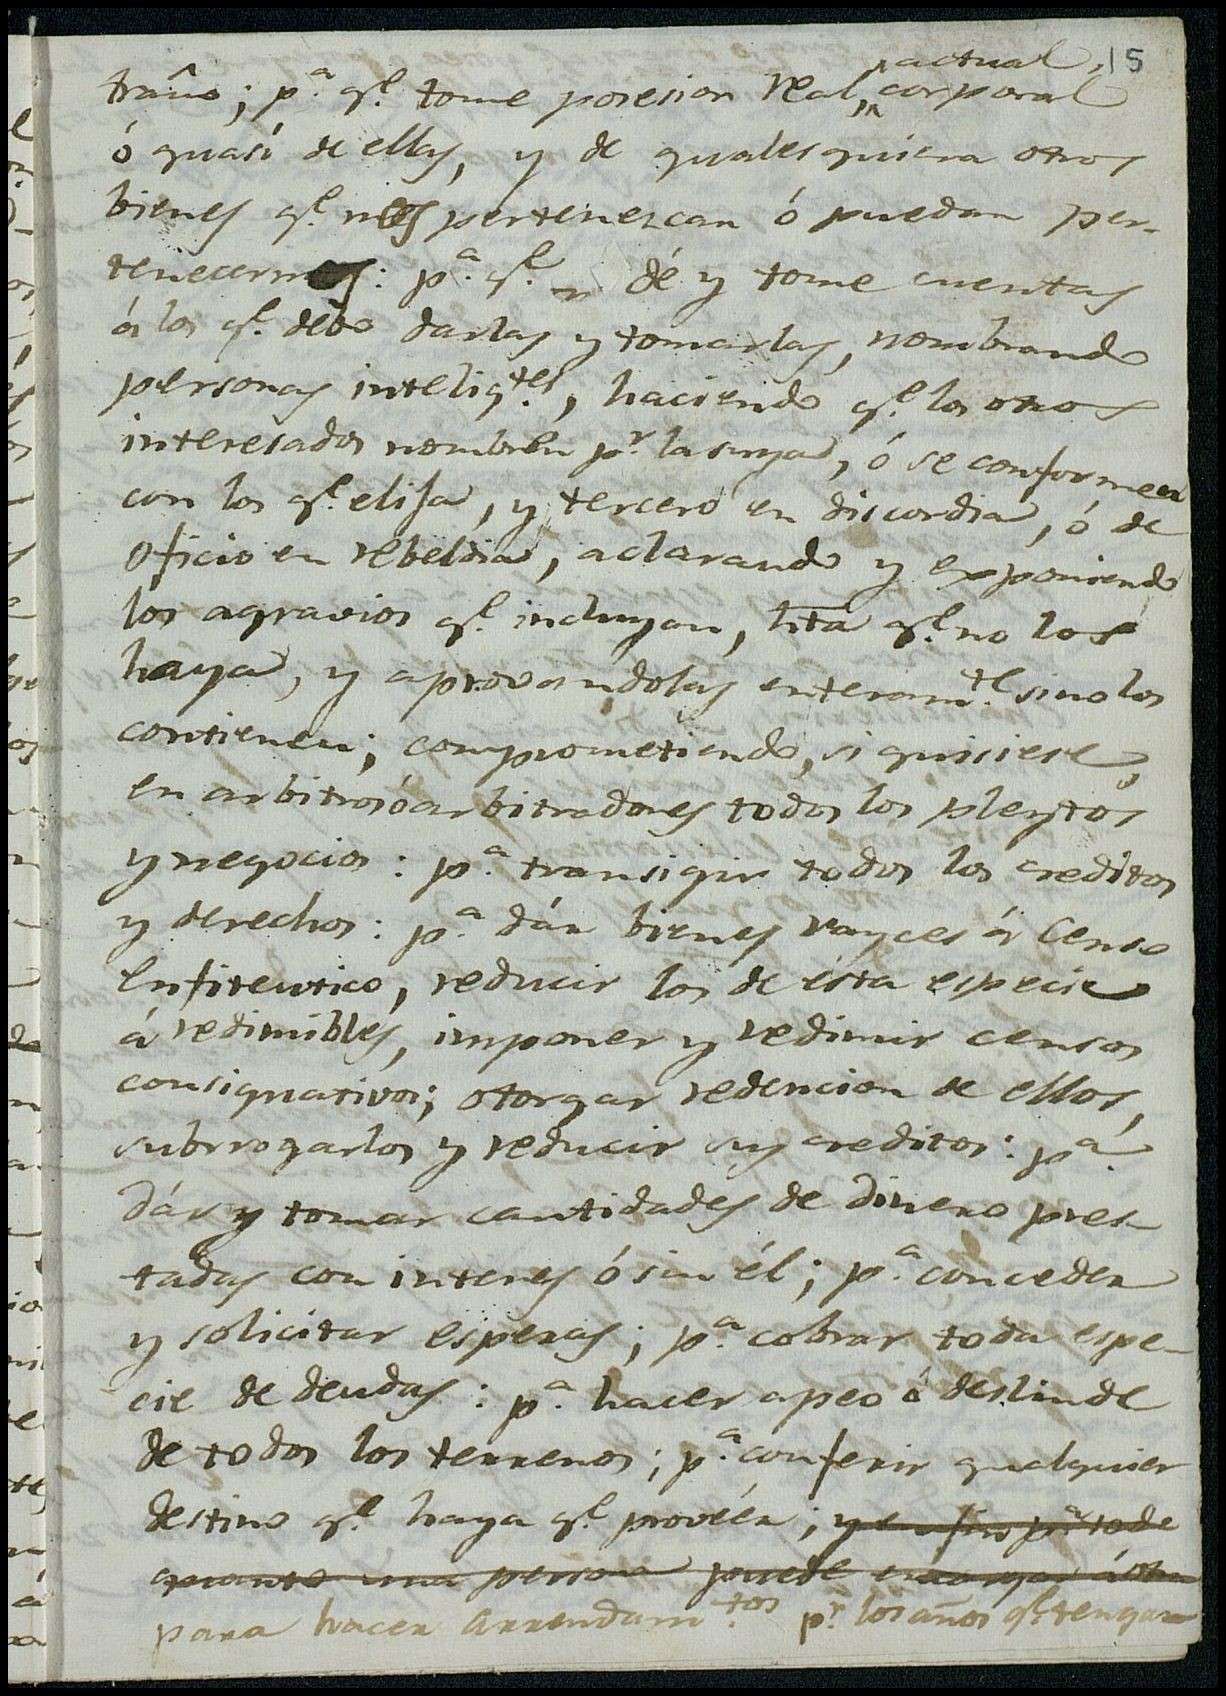 actual, 15
trâno; p.ª q.e tome posesion real, corporal
ó quasi de ellas, y de qualesquiera otros
bienes q.e nos pertenezcan ó puedan per-
tenecernos: p.ª q.e dé y tome cuentas
á los q.e debo darlas y tomarlas, nombrando
personas inteligtes, haciendo q.e los otros
interesados nombren p.r la suya, ó se conformen
con los q.e elija, y tercero en discordia, ó de
oficio en rebeldia, aclarando y exponiendo
los agravios q.e incluyan, hta q.e no los
haya, y aprovandolas enteram.te sino los
contienen; comprometiendo, si quisiese,
en arbitros ó arbitradores todos los pleytos
y negocios: p.ª transigir todos los creditos
y derechos: p.ª dár bienes rayces á Censo
Enfiteutico, reducir los de ésta especie
á redimibles, imponer y redimir censos
consignativos; otorgar redencion de ellos,
subrrogarlos y reducir sus creditos: p.ª
dár y tomar cantidades de dinero pres-
tadas con interes ó sin él; p.ª conceder
y solicitar esperas; p.ª cobrar toda espe-
cie de deudas: p.ª hacer apeo ó deslinde
de todos los terrenos; p.ª conferir qualquier
destino q.e haya q.e proveér; y en fin p.ª todo
quanto una persona puede encargar á otra
para hacer Arrendam.tos p.r los años q.e tengan